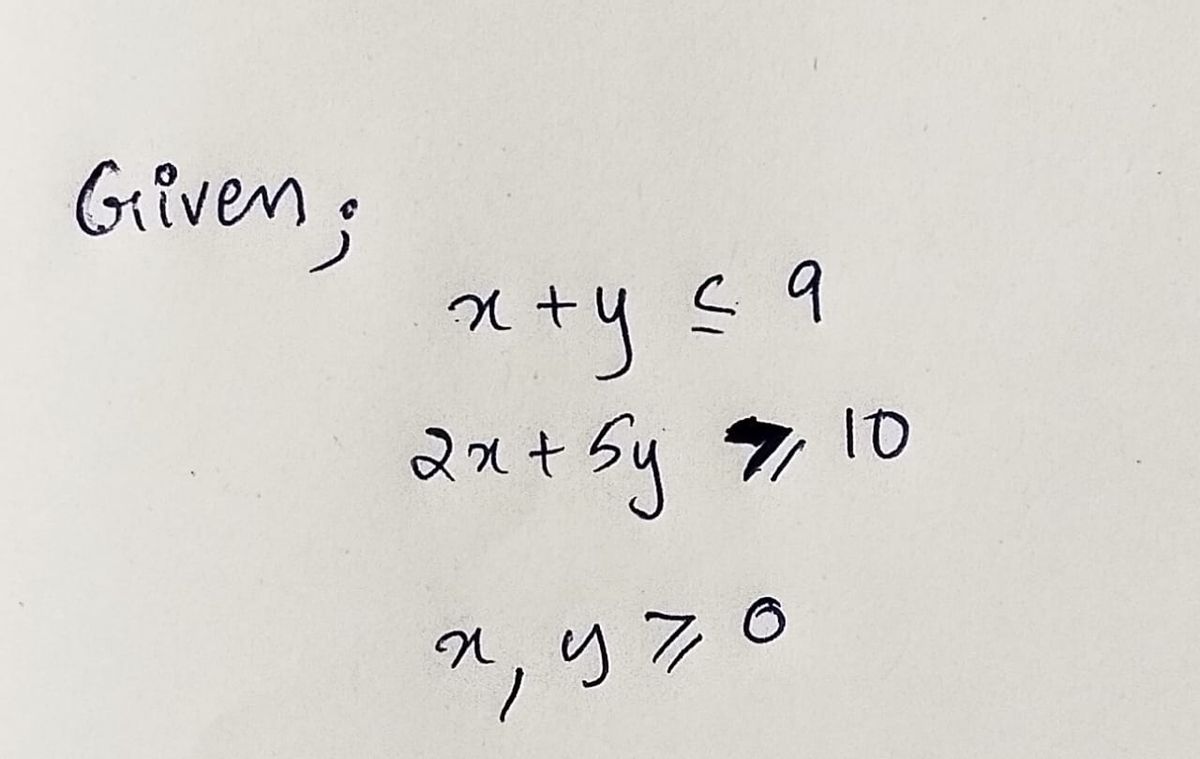 Given;
x + y ≤ 9
2x + 5y ⩾ 10
x, y ⩾ 0